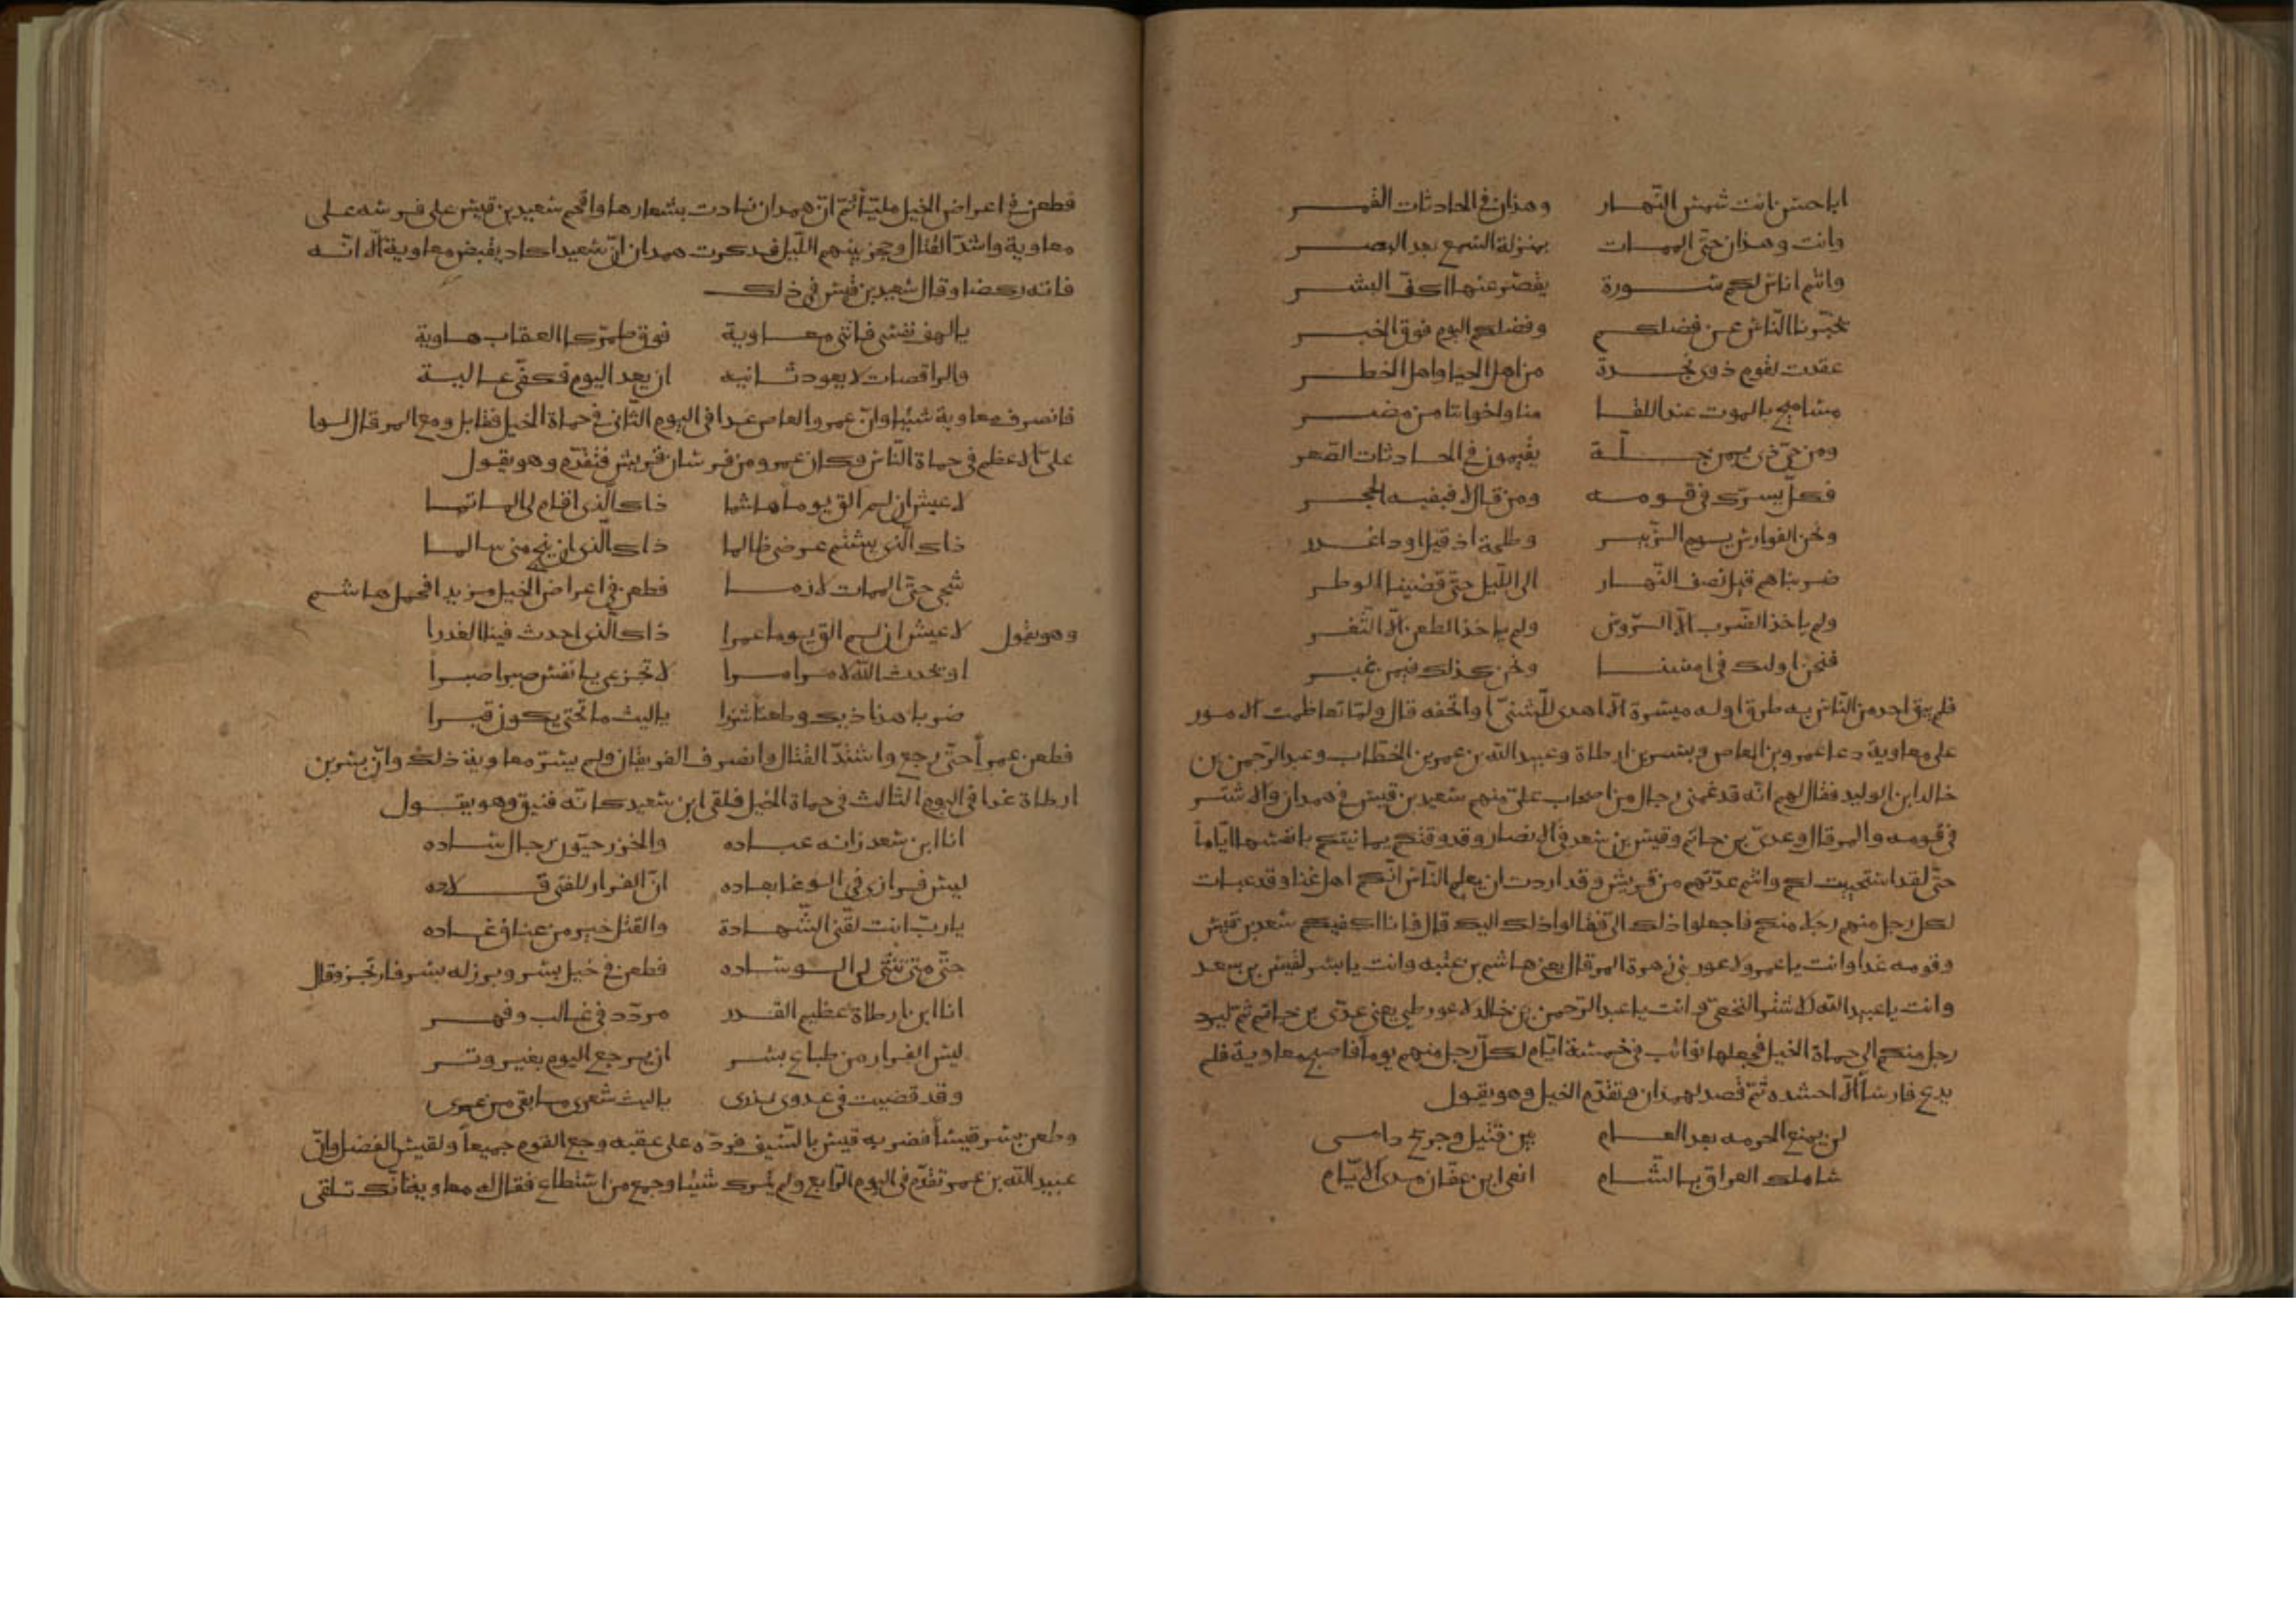 ابا حسن انت شمس النّهار وهذان في الحادثات القمر
وانت وهذان حتّى الممات بمنزلة السمع بعد البصر
وانتم اناس لكم سورة يقصر عنها اكفّ البشر
يخبّرنا النّاس عن فضلكم وفضلكم اليوم فوق الخبر
عقدت لقوم ذوى نجدة من اهل الحيا واهل الخطر
مساميح بالموت عند اللقا منا واخواننا من مضر
ومن حيّ ذى يمن جلّة يقيمون في الحادثات الصّعر
فكلّ يسرّك في قومه ومن قال لا فبفيه الحجر
ونحن الفوارس يوم الزّبير وطلحة اذ قيل اودا غدر
ضربناهم قبل نصف النّهار الى اللّيل حتّى قضينا الوطر
ولم ياخذ الضّرب الّا الرّوس ولم ياخذ الطعن الّا الثّغر
فنحن اولئك في امسنا ونحن كذلك فيمن غبر
فلم يبق احد من النّاس به طرق اوله ميسرة الّا اهدى للشنّيّ اواتحفه قال ولمّا تعاظمت الامور
على معاوية دعا عمرو بن العاص وبسر بن ارطاة وعبيد الله بن عمر بن الخطّاب وعبد الرّحمن بن
خالد ابن الوليد فقال لهم انّه قد غمّنى رجال من اصحاب علىّ منهم سعيد بن قيس في همدان والاشتر
في قومه والمرقال وعدىّ بن حاتم وقيس بن سعد في الانصار وقد وقتكم يمانيتكم بانفسها ايّاماً
حتّى لقد استحييت لكم وانتم عدّتهم من قريش وقد اردت ان يعلم النّاس انّكم اهل غنا وقد عبات
لكل رجل منهم رجلا منكم فاجعلوا ذلك الىّ فقالوا ذلك اليك قال فانا اكفيكم سعيد بن قيس
وقومه غدا وانت يا عمرو لاعور بنى زهرة المرقال يعنى هاشم بن عتبه وانت يا بسر لقيس بن سعد
وانت يا عبيد الله للاشتر النخعىّ وانت يا عبد الرّحمن بن خالد لاعور طى يعنى عدّى بن حاتم ثمّ ليرد
رجل منكم الى حماة الخيل فجعلها نوائب في خمسة ايّام لكلّ رجل منهم يوماً فاصبح معاوية فلم
يدع فارساً الّا احشده ثمّ قصد لهمدان وتقدّم الخيل وهو يقول
لن يمنع الحرمه بعد العام بين قتيل وجريح دامى
سأملك العراق بالشّام انعى ابن عفّان مدى الايّام
فطعن في اعراض الخيل مليّاً ثمّ انّ همدان نادت بشعارها واقحم سعيد بن قيس على فرسه على
معاوية واشتدّ القتال وحجز بينهم اللّيل فذكرت همدان انّ سعيدا كاد يقبض معاوية الّا انّه
فاته ركضا وقال سعيد بن قيس في ذلك
يا لهف نفسى فاتنى معاوية فوق طمرّ كالعقاب هاوية
والراقصات لا يعود ثانيه ان يعد اليوم فكفّى عالية
فانصرف معاوية شيئا وانّ عمرو العاص غدا في اليوم الثّانى في حماة الخيل فقابل ومع المرقال لوا
علىّ الاعظم في حماة النّاس وكان عمرو من فرسان قريش فتقدّم وهو يقول
لا عيش ان لم الق يوما هاشما ذاك الّذى اقام لى الماتما
ذاك الّذى يشتم عرضى ظالما ذاك الّذى ان ينج منى سالما
شجى حتّى الممات لازما فطعن في اعراض الخيل مزبدا فحمل هاشم
وهو يقول لا عيش ان لم الق يوما عمرا ذاك الّذى احدث فينا الغدرا
او يحدث الله لامر امرا لا تجزعى يا نفس صبرا صبرا
ضربا هذا ذيك وطعنا شزرا ياليت ما تحتى يكون قبرا
فطعن عمراً حتّى رجع واشتدّ القتال وانصرف الفريقان ولم يسرّ معاوية ذلك وانّ بسر بن
ارطاة غدا في اليوم الثالث في حماة الخيل فلقى ابن سعيد كانّه فنيق وهو يقول
انا ابن سعد زانه عباده والخزرجيّون رجال ساده
ليس فرارى في الوغا بعاده انّ الفرار للفتى قلاده
يا ربّ انت لقّنى الشّهادة والقتل خير من عناق غاده
حتّى متى تثنّى لى الوساده فطعن في خيل بسر وبرز له بسر فارتجز وقال
انا ابن ارطاة عظيم القدر مردّد في غالب وفهر
ليس الفرار من طباع بسر ان يرجع اليوم بغير وتر
وقد قضيت في عدوى نذرى ياليت شعرى ما بقى من عمرى
وطعن بسر قيساً فضربه قيس بالسّيف فردّه على عقبه ورجع القوم جميعاً ولقيس الفضل وانّ
عبيد الله بن عمر تقدّم في اليوم الرّابع ولم يترك شيئا وجمع من استطاع فقال له معاوية انّك تلقى